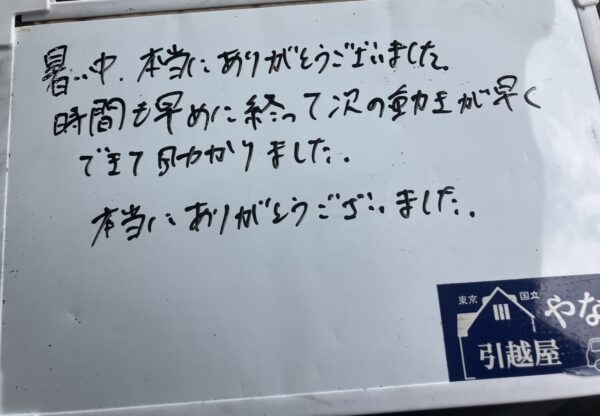 暑い中、本当にありがとうございました。
時間も早めに終って次の動きが早く
できて助かりました。
本当にありがとうございました。
東京 国立
やな
引越屋